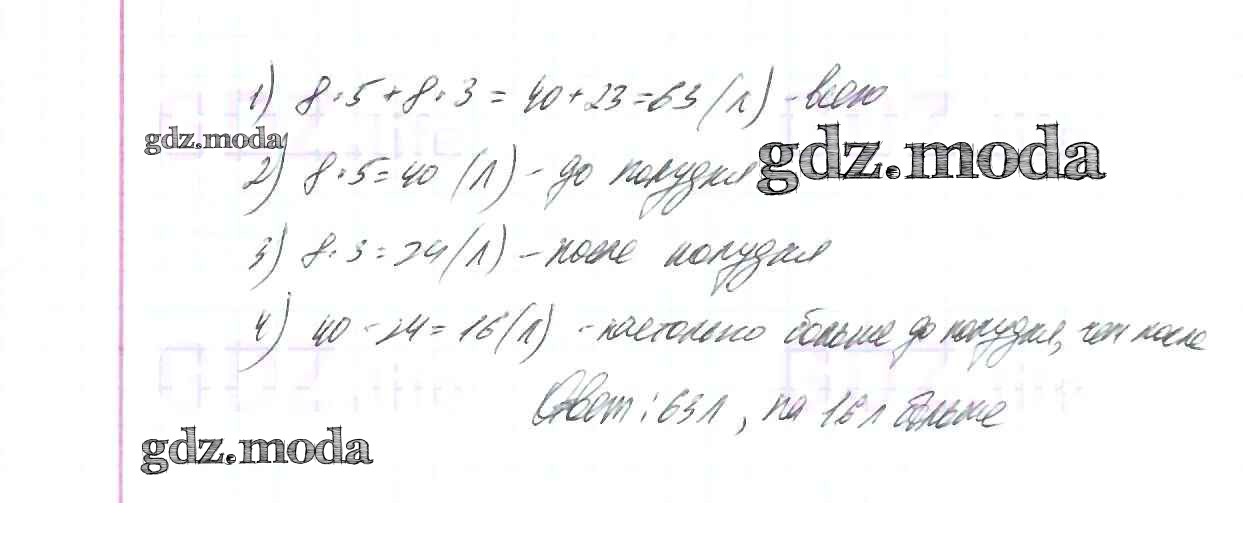 1) 8·5+8·3=40+23=63 (л) - всего
gdz.moda
gdz.moda
2) 8·5=40 (л) - до полудня
3) 8·3=24 (л) - после полудня
4) 40-24=16 (л) - настолько больше до полудня, чем после
Ответ: 63 л, на 16 л больше
gdz.moda